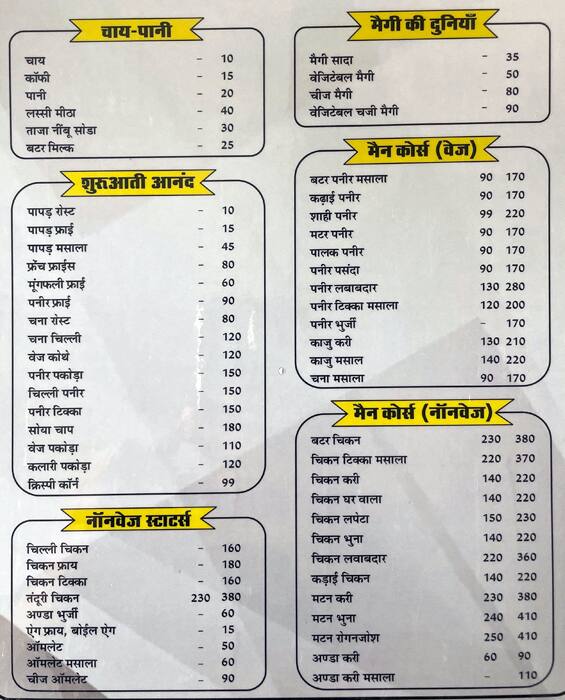 चाय-पानी
चाय - 10
कॉफी - 15
पानी - 20
लस्सी मीठा - 40
ताजा नींबू सोडा - 30
बटर मिल्क - 25
शुरूआती आनंद
पापड़ रोस्ट - 10
पापड़ फ्राई - 15
पापड़ मसाला - 45
फ्रेंच फ्राईस - 80
मूंगफली फ्राई - 60
पनीर फ्राई - 90
चना रोस्ट - 80
चना चिल्ली - 120
वेज कोथे - 120
पनीर पकोड़ा - 150
चिल्ली पनीर - 150
पनीर टिक्का - 150
सोया चाप - 180
वेज पकोड़ा - 110
कलारी पकोड़ा - 120
क्रिस्पी कॉर्न - 99
नॉनवेज स्टाटर्स
चिल्ली चिकन - 160
चिकन फ्राय - 180
चिकन टिक्का - 160
तंदूरी चिकन 230 380
अण्डा भुर्जी - 60
ऐग फ्राय, बोईल ऐग - 15
ऑमलेट - 50
ऑमलेट मसाला - 60
चीज ऑमलेट - 90
मैगी की दुनियाँ
मैगी सादा - 35
वेजिटेबल मैगी - 50
चीज मैगी - 80
वेजिटेबल चजी मैगी - 90
मैन कोर्स (वेज)
बटर पनीर मसाला 90 170
कढ़ाई पनीर 90 170
शाही पनीर 99 220
मटर पनीर 90 170
पालक पनीर 90 170
पनीर पसंदा 90 170
पनीर लबाबदार 130 280
पनीर टिक्का मसाला 120 200
पनीर भुर्जी - 170
काजु करी 130 210
काजु मसाल 140 220
चना मसाला 90 170
मैन कोर्स (नॉनवेज)
बटर चिकन 230 380
चिकन टिक्का मसाला 220 370
चिकन करी 140 220
चिकन घर वाला 140 220
चिकन लपेटा 150 230
चिकन भुना 140 220
चिकन लवाबदार 220 360
कड़ाई चिकन 140 220
मटन करी 230 380
मटन भुना 240 410
मटन रोगनजोश 250 410
अण्डा करी 60 90
अण्डा करी मसाला - 110